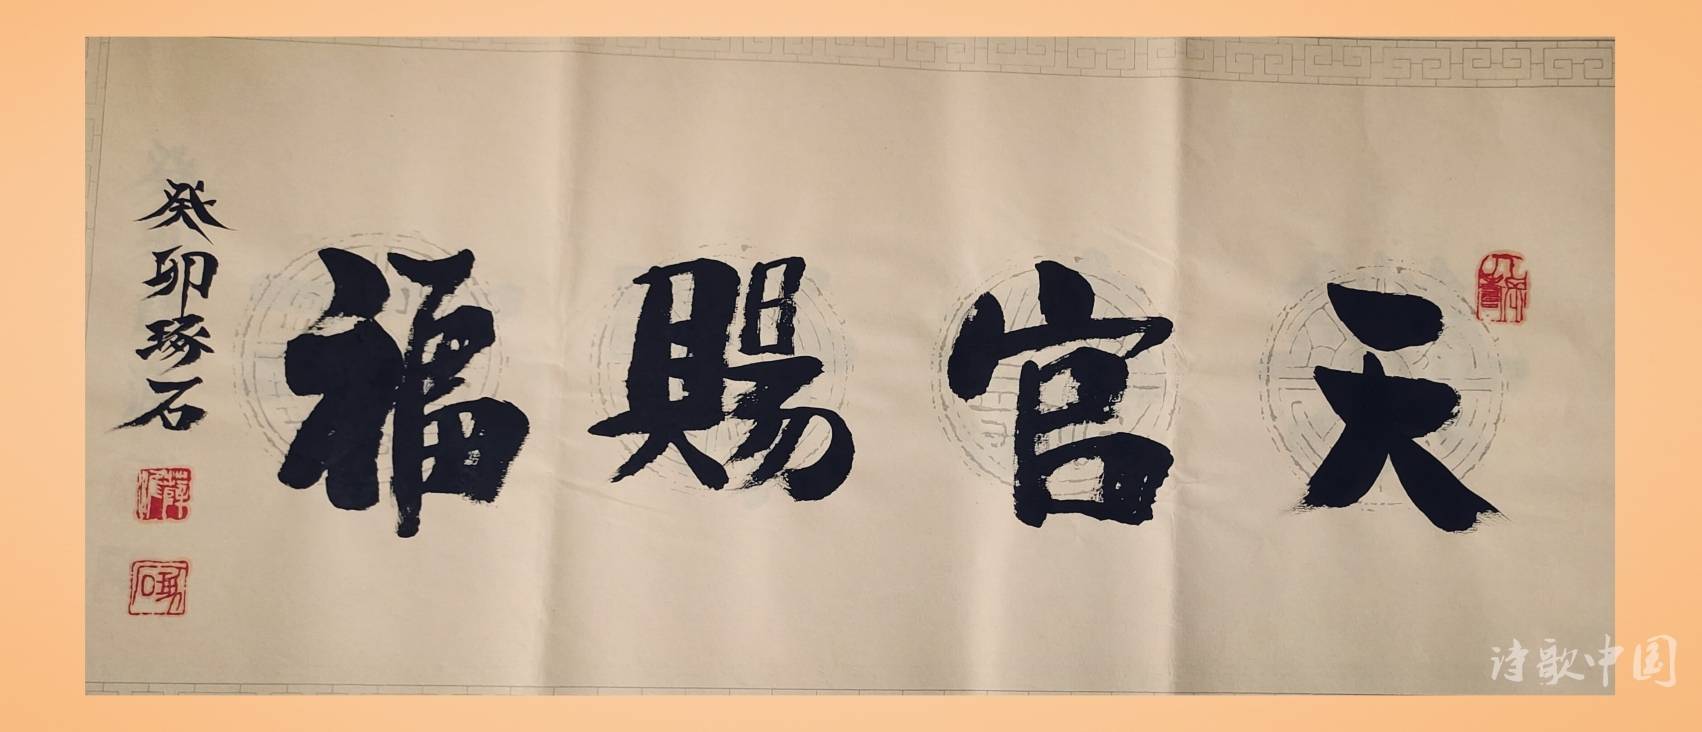 天官賜福
癸卯琢石
诗歌中国